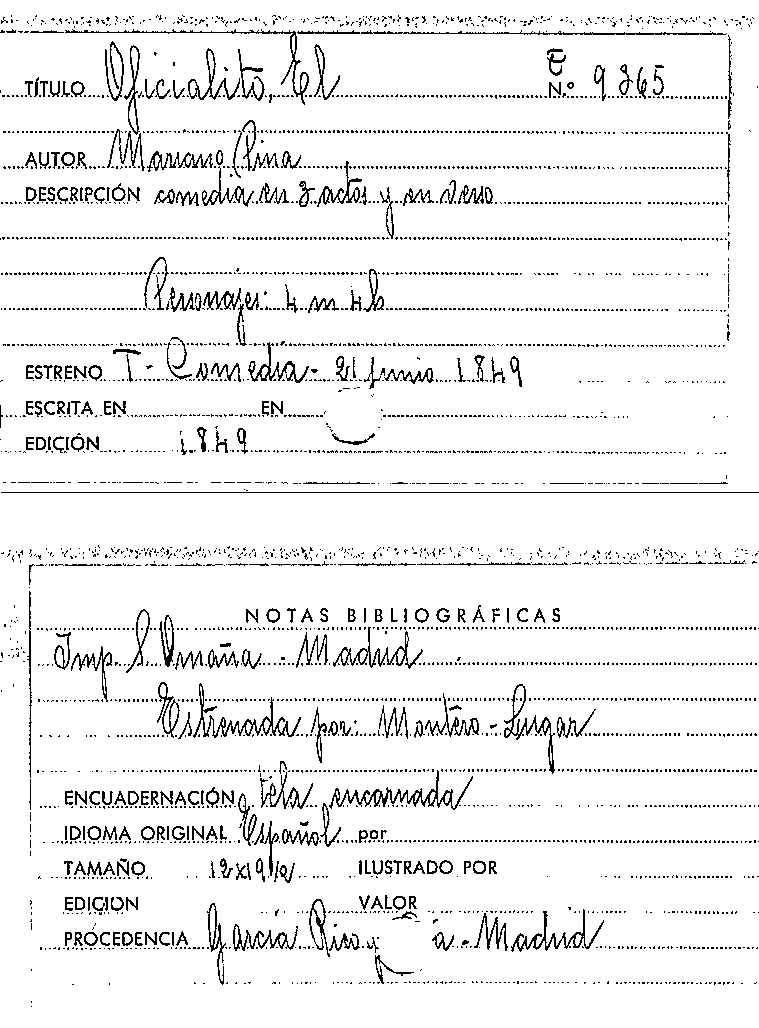 TÍTULO Oficialito, El
T
N.º 9265
AUTOR Mariano Pina
DESCRIPCIÓN comedia en 3 actos y en verso
Personajes: 4 m 4 h
ESTRENO T - Comedia - 21 Junio 1849
ESCRITA EN EN
EDICIÓN 1849
NOTAS BIBLIOGRÁFICAS
Imp. S. Omaña - Madrid
Estrenada por: Montero - Lugar
ENCUADERNACIÓN tela encarnada
IDIOMA ORIGINAL Español por
TAMAÑO 12x19 1/2 ILUSTRADO POR
EDICION VALOR
PROCEDENCIA García Rico y Cª - Madrid